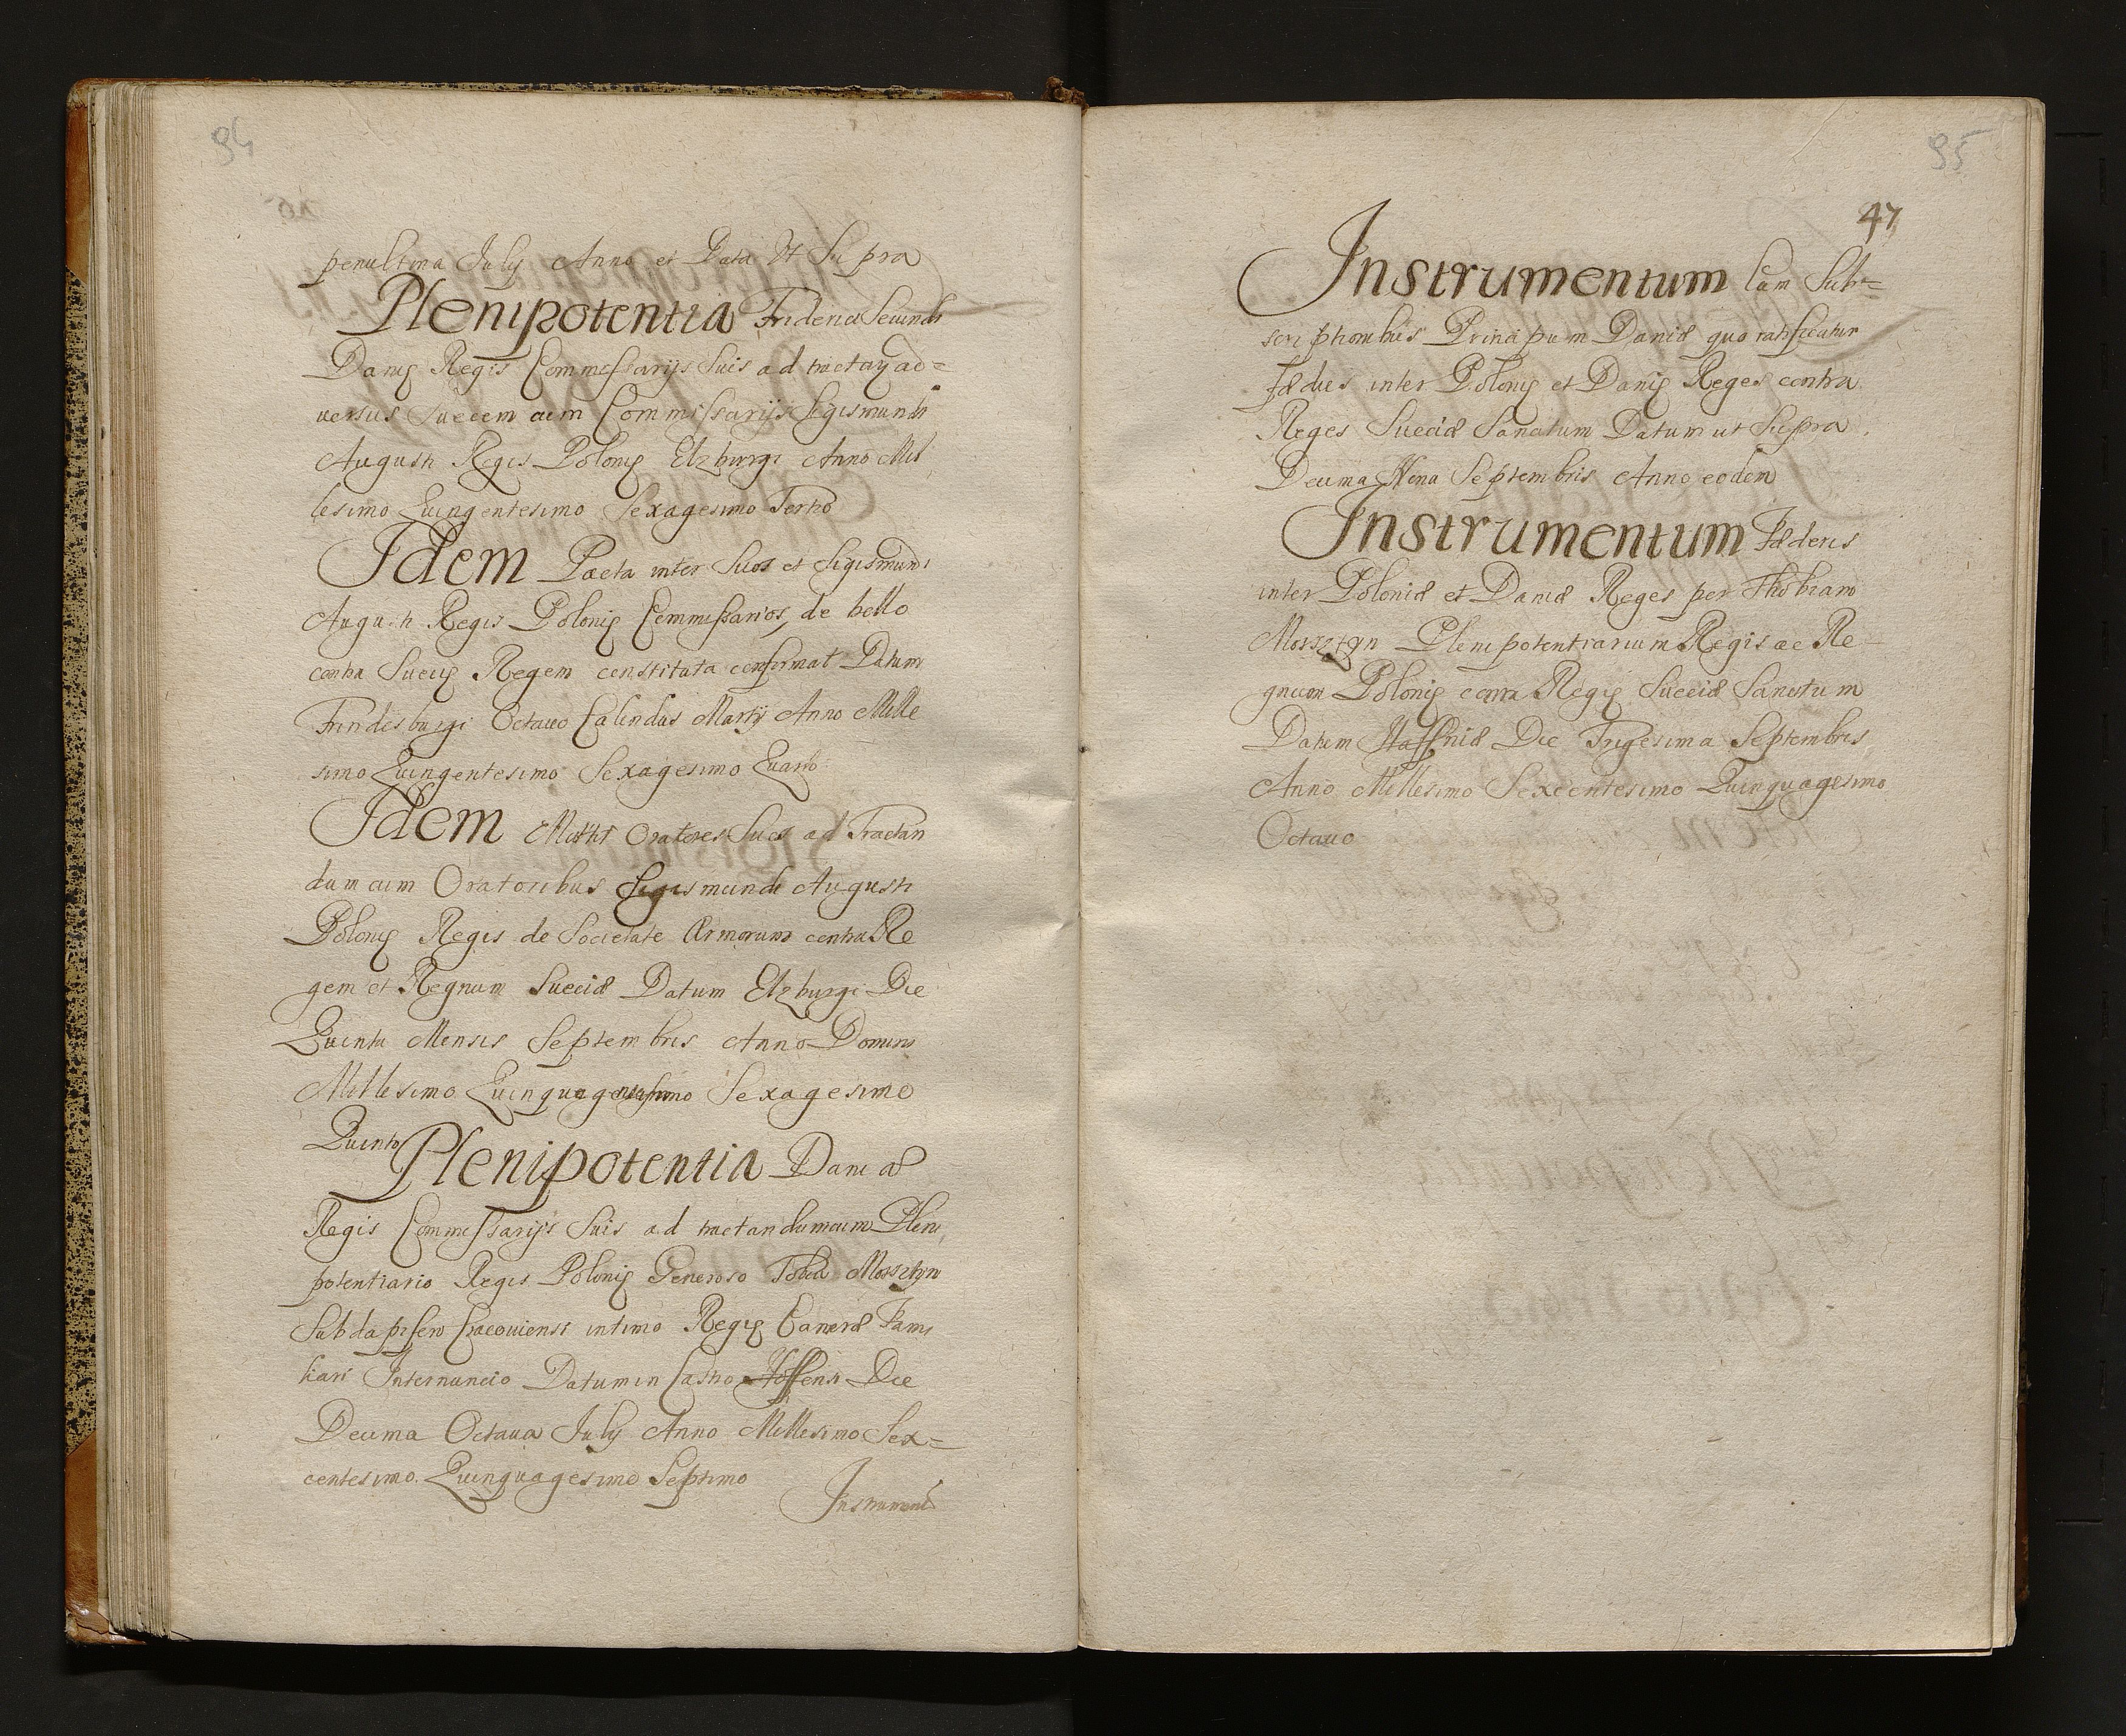 94
penultima July Anno et Data Ut Supra
Plenipotentia Friderici Secundi
Danię Regis Commissarijs Suis ad tractaŋ ad=
uersus Suecem cum Commissarijs Sigismundi
Augusti Regis Polonię Elzburgi Anno Mil
lesimo Quingentesimo Sexagesimo Tertio
Idem Pacta inter Suos et Sigismundi
Augusti Regis Polonię Commissarios, de bello
contra Suecię Regem constituta confirmat Datum
Frindesburgi Octauo Calendas Martij Anno Mille
simo Quingentesimo Sexagesimo Quarto
Idem Mittit Oratores Suos ad Tractan
dum cum Oratoribus Sigismundi Augusti
Polonię Regis de Societate Armorum contra Re
gem et Regnum Sueciæ Datum Elzburgi Die
Quinta Mensis Septembris Anno Domini
Millesimo Sexagesimo
Quinto
Plenipotentia Daniæ
Regis Commissarijs Suis ad tractandum cum Pleni,
potentiario Regis Polonię Generoso Tobia Morsztyn
Subdapifero Cracouiensi intimo Regię Cameræ Fami
liari Internuncio Datum in Castro Haffensi Die
Decima Octaua July Anno Millesimo Sex=
centesimo. Quinquagesimo Septimo
Instrument
95
47
Instrumentum Cum Sub=
scriptionibus Principum Daniæ quo ratificatur
Fædus inter Polonię et Danię Reges contra
Reges Sueciæ Sancitum Datum ut Supra.
Decima Nona Septembris Anno eodem
Instrumentum Fæderis
inter Poloniæ et Daniæ Reges per Thobiam
Morsztyn Plenipotentiarium Regis ac Re-
gnum Polonię contra Regę Sueciæ Sancitum
Datum Haffniæ Die Trigesima Septembris
Anno Millesimo Sexcentesimo Quinquagesimo
Octauo